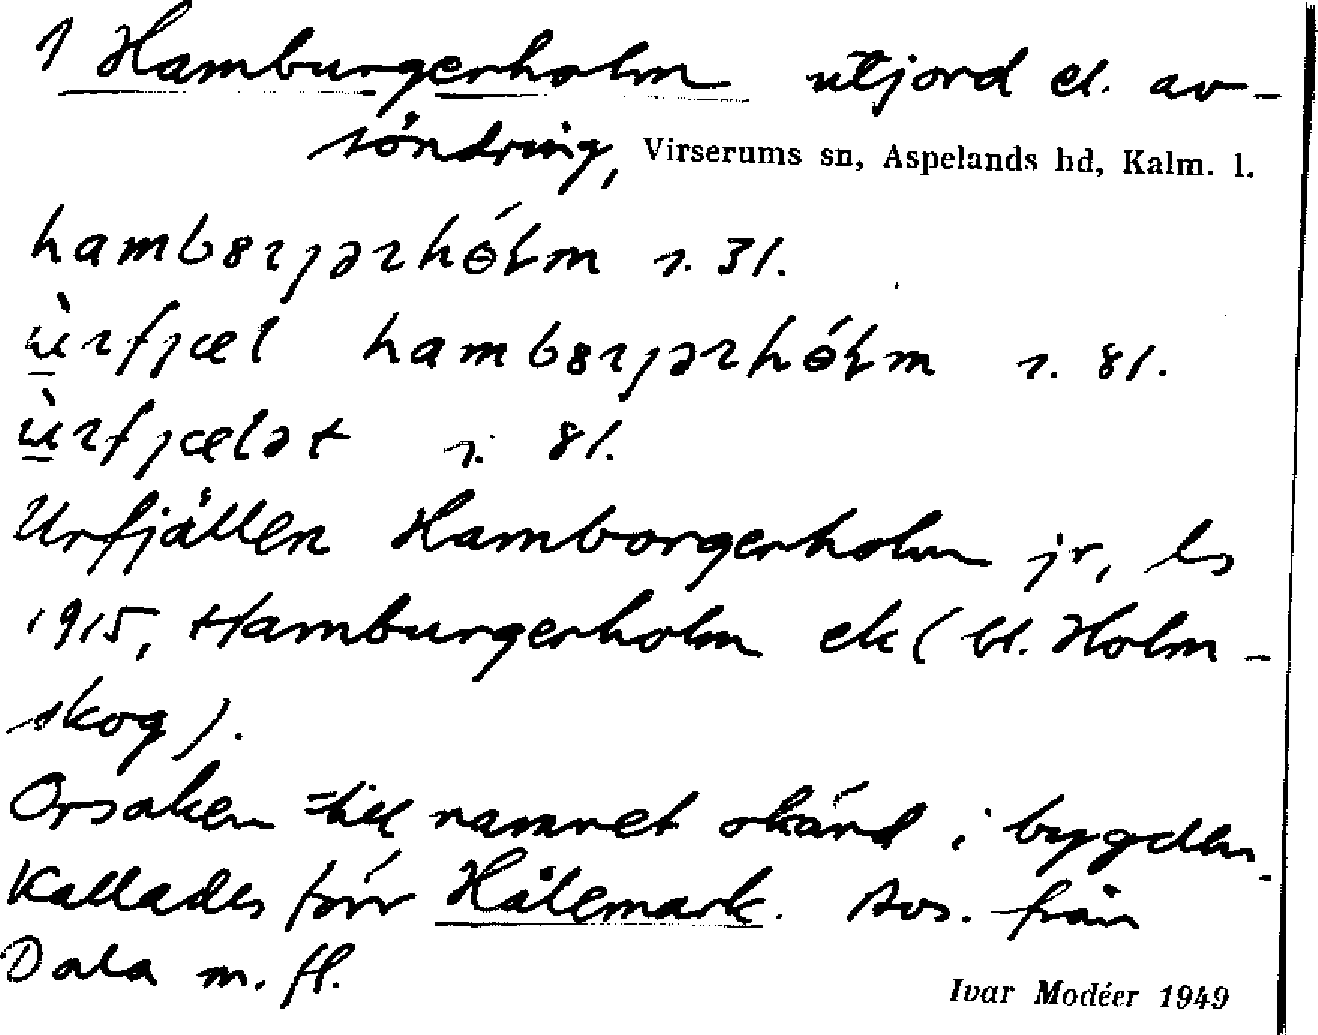 1 Hamburgerholm utjord el. av-
söndring, Virserums sn, Aspelands hd, Kalm. l.
hambɞrȷərhɵ́ɫm s. 31.
ù̱rfjæl hambɞrȷərhɵ́ɫm s. 81.
ù̱rfjælət s. 81.
Urfjällen Hamborgerholm jr, ls
1915, Hamburgerholm ek (bl. Holm-
skog).
Orsaken till namnet okänd i bygden.
Kallades förr Hålemark. Avs. från
Dala m. fl.
Ivar Modéer 1949